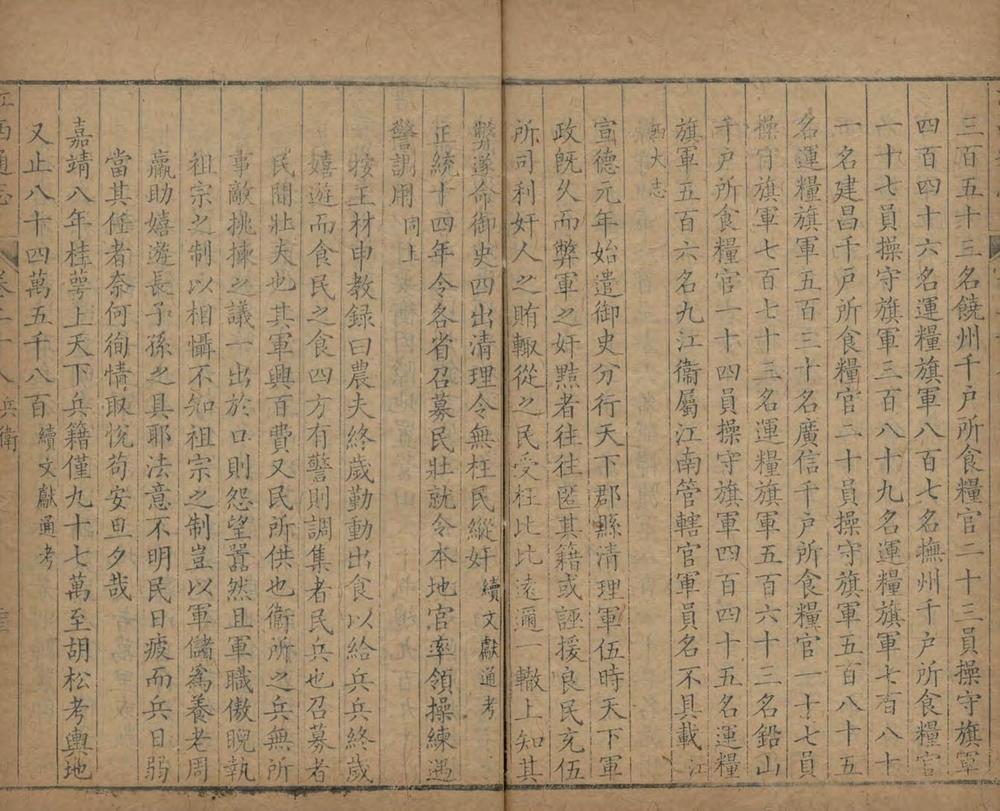 三百五十三名饒州千戶所食糧官二十三員操守旗軍
四百四十六名運糧旗軍八百七名撫州千戶所食糧官
一十七員操守旗軍三百八十九名運糧旗軍七百八十
一名建昌千戶所食糧官二十員操守旗軍五百八十五
名運糧旗軍五百三十名廣信千戶所食糧官一十七員
操守旗軍七百七十三名運糧旗軍五百六十三名鉛山
千戶所食糧官一十四員操守旗軍四百四十五名運糧
旗軍五百六名九江衞屬江南管轄官軍員名不具載江
西大志
宣德元年始遣御史分行天下郡縣清理軍伍時天下軍
政既久而弊軍之奸黠者往往匿其籍或誣援良民充伍
所司利奸人之賄輙從之民受枉比比遠邇一轍上知其
弊遂命御史四出清理令無枉民縱奸續文獻通考
正統十四年令各省召募民壯就令本地官率領操練遇
警調用同上
按王材申教錄曰農夫終歲勤動出食以給兵兵終歲
嬉遊而食民之食四方有警則調集者民兵也召募者
民間壯夫也其軍興百費又民所供也衞所之兵無所
事敵挑揀之議一出於口則怨望囂然且軍職傲睨執
祖宗之制以相懾不知祖宗之制豈以軍儲爲養老周
羸助嬉遊長子孫之具耶法意不明民日疲而兵日弱
當其任者奈何徇情取悅苟安旦夕哉
嘉靖八年桂萼上天下兵籍僅九十七萬至胡松考輿地
又止八十四萬五千八百續文獻通考
江西通志 卷二十八 兵衞